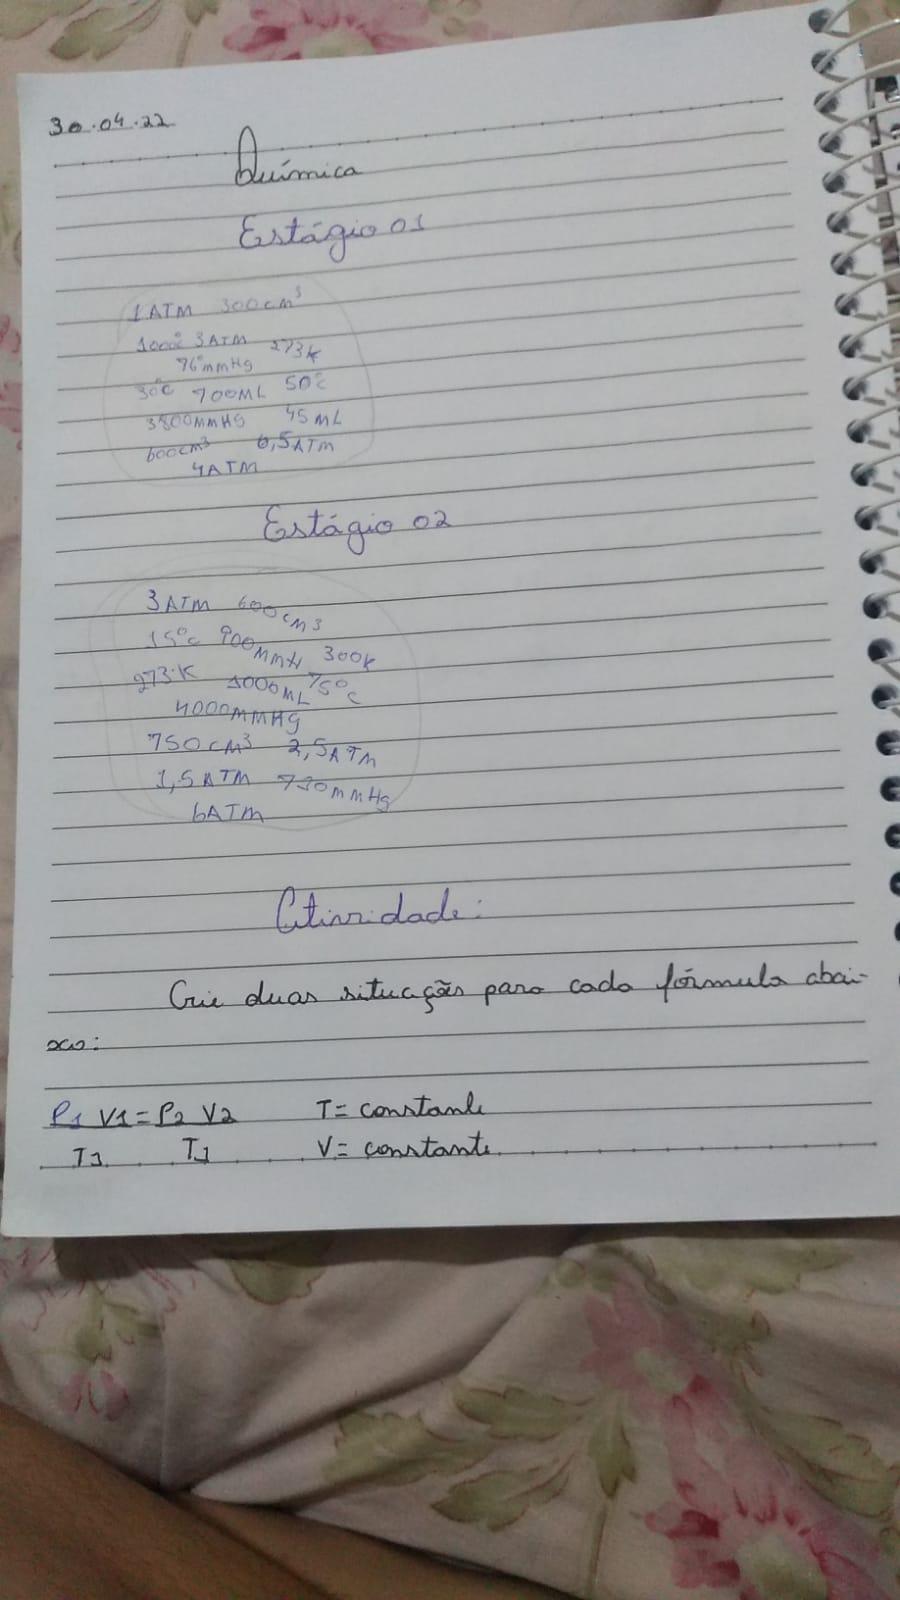 30.04.22
Química
Estágio 01
1 ATM 300cm³
100°C 3ATM 273K
76°mmHg
30°C 700ML 50°C
3800MMHG 45ML
600cm³ 6,5ATM
4ATM
Estágio 02
3ATM 600cm³
15°C 900MMH 300K
273·K 1000ML 75°C
4000MMHG
750cm³ 2,5ATM
1,5ATM 730mmHg
6ATM
Atividade:
Crie duas situações para cada fórmula abai-
xo:
P1 V1=P2 V2 T= constante
T1 T1 V= constante